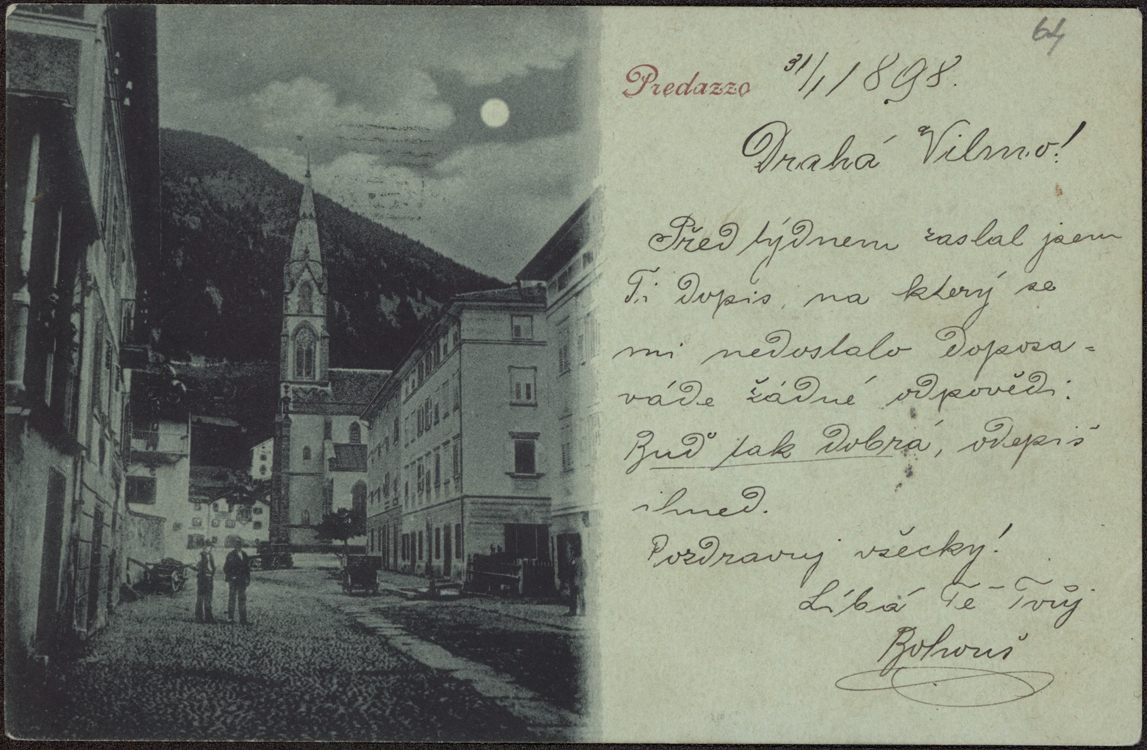 64
Predazzo 31/1 1898.
Drahá Vilmo!
Před týdnem zaslal jsem
Ti dopis, na který se
mi nedostalo doposa-
váde žádné odpovědi.
Buď tak dobrá, odepiš
ihned.
Pozdravuj všecky!
Líbá Tě Tvůj
Bohouš